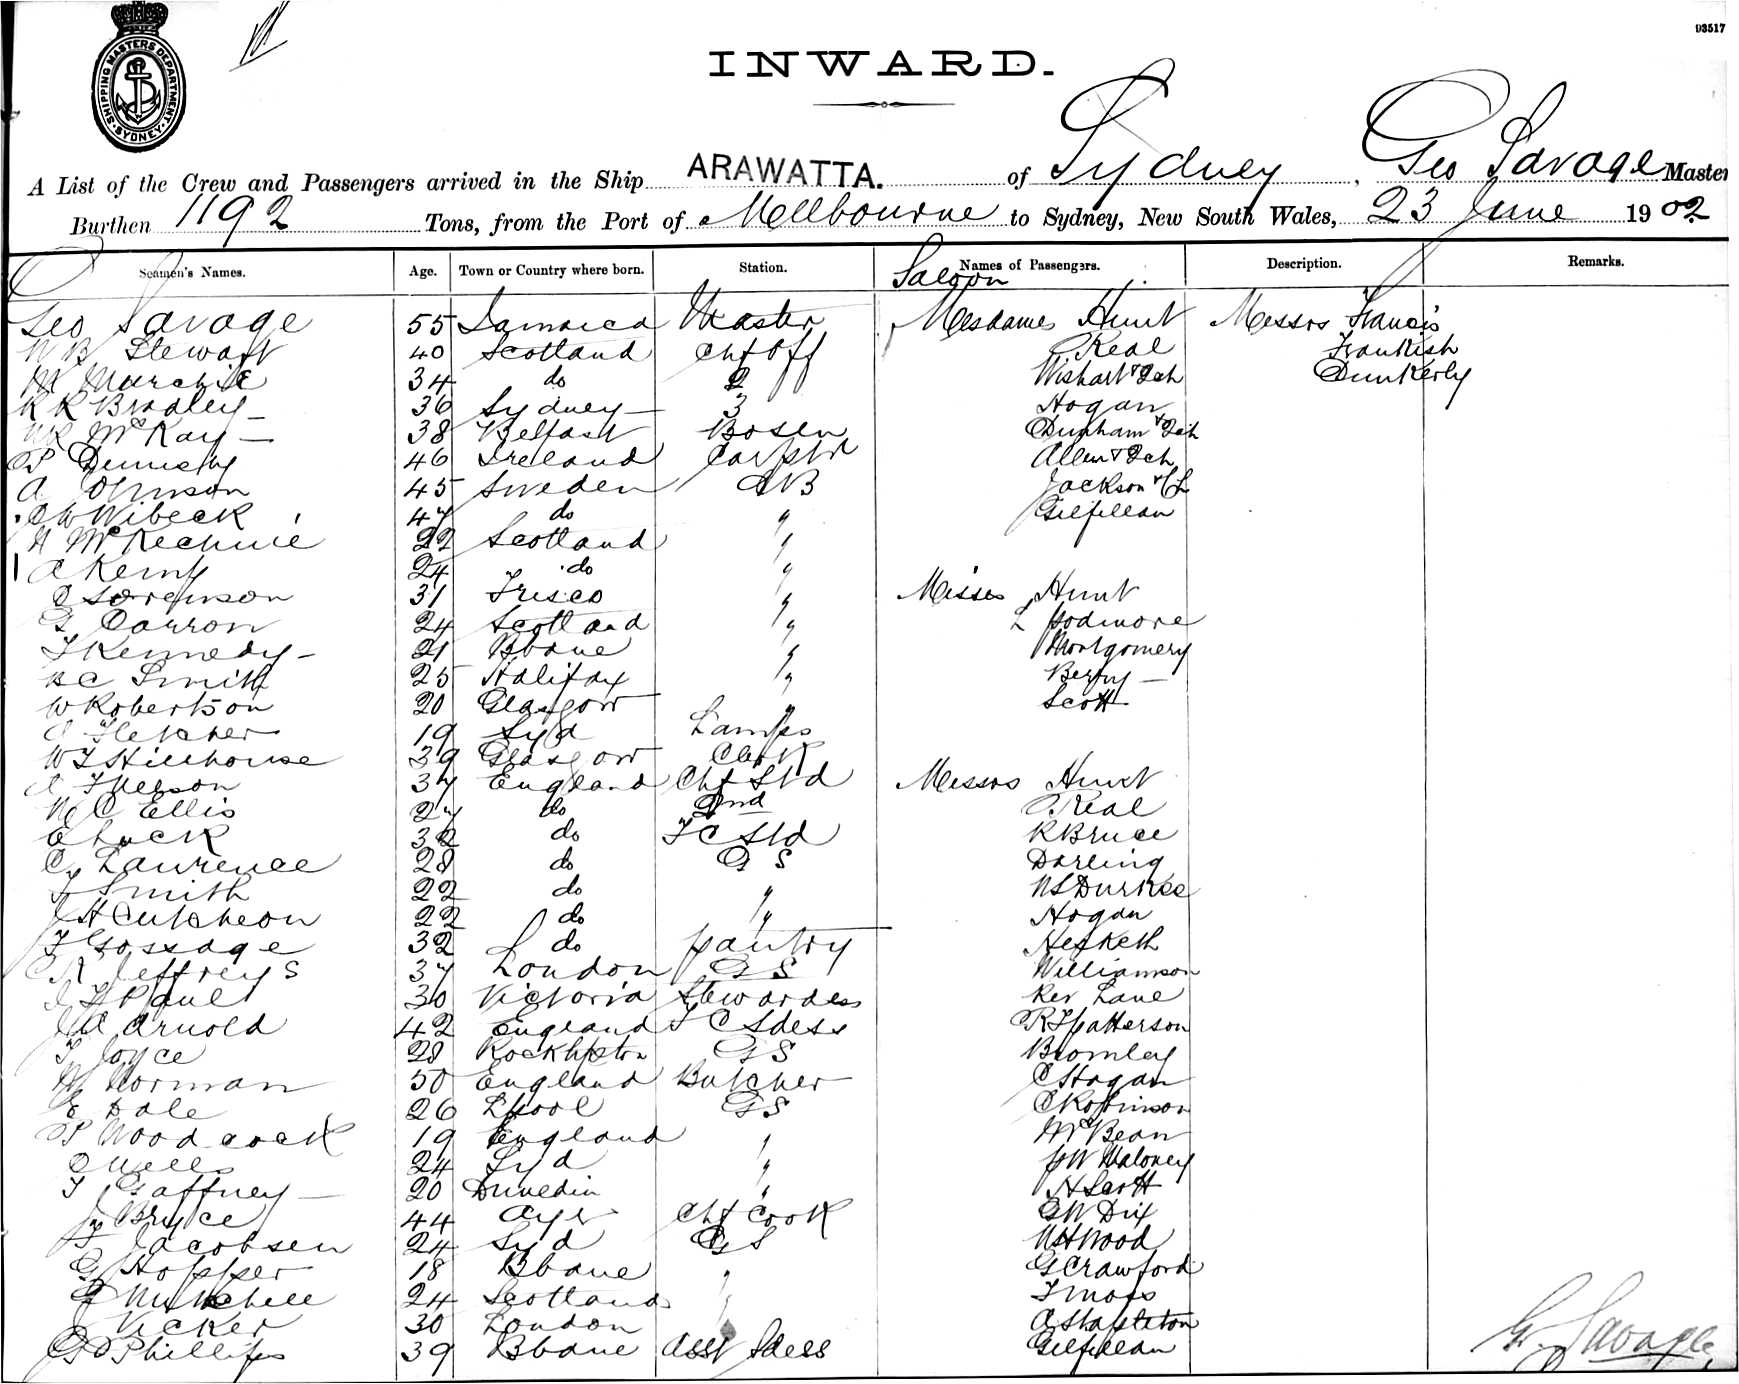 93517
SHIPPING MASTERS DEPARTMENT. SYDNEY.
INWARD.
A List of the Crew and Passengers arrived in the Ship ARAWATTA. of Sydney, Geo Savage Master
Burthen 1192 Tons, from the Port of Melbourne to Sydney, New South Wales, 23 June 1902
Seamen's Names. Age. Town or Country where born. Station. Names of Passengers. Description. Remarks.
Saloon
Geo Savage 55 Jamaica Master Mesdames Hunt Messrs Francis
W B Stewart 40 Scotland Chf Off Real Frankish
M Murchie 34 do 2 Wishart & Dch Dunkerly
R R Bradley 36 Sydney 3 Hogan
McKay 38 Belfast Bosen Dunham & Dch
P Dennehy 46 Ireland Carptr Allen & Dch
A Johnson 45 Sweden AB Jackson &
C W Wibeck 47 do " Gilfillan
H McKechnie 22 Scotland "
A Kemf 24 do "
O Sorenson 31 Frisco " Misses Hunt
G Carron 24 Scotland " L Podmore
T Kennedy 21 Bbane " Montgomery
H C Smith 25 Halifax " Berry
W Robertson 20 Glasgow " Scott
Fletcher 19 Syd Lamps
W F Hillhouse 39 Glasgow Clerk
37 England Chf Std Messrs Hunt
W C Ellis 27 do 2nd Real
E Luck 32 do F C Std R Bruce
C Laurence 28 do G S Darling
Smith 22 do " W S Durkee
J H Cutcheon 22 do " Hogan
F Gossage 32 do Pantry Hesketh
R Jeffreys 37 London G S Williamson
Paul 30 Victoria Stewardess Rev Lane
A Arnold 42 England F C Sdess R F Patterson
T Joyce 28 Rockhpton G S Bromley
W Norman 50 England Butcher C Hogan
E Dale 26 Lpool G S C Robinson
P Woodcock 19 England " McBean
O Wells 24 Syd " J W Maloney
T Gaffney 20 Dunedin " H Scott
Bryce 44 Ayr Chf Cook G W Dix
Jacobsen 24 Syd G S W H Wood
G Hopper 18 Bbane " G Crawford
Mitchell 24 Scotland " F Moss
Vicker 30 London " A Stapleton
G D Phillips 39 Bbane Asst Sdess Gilfillan
G. Savage